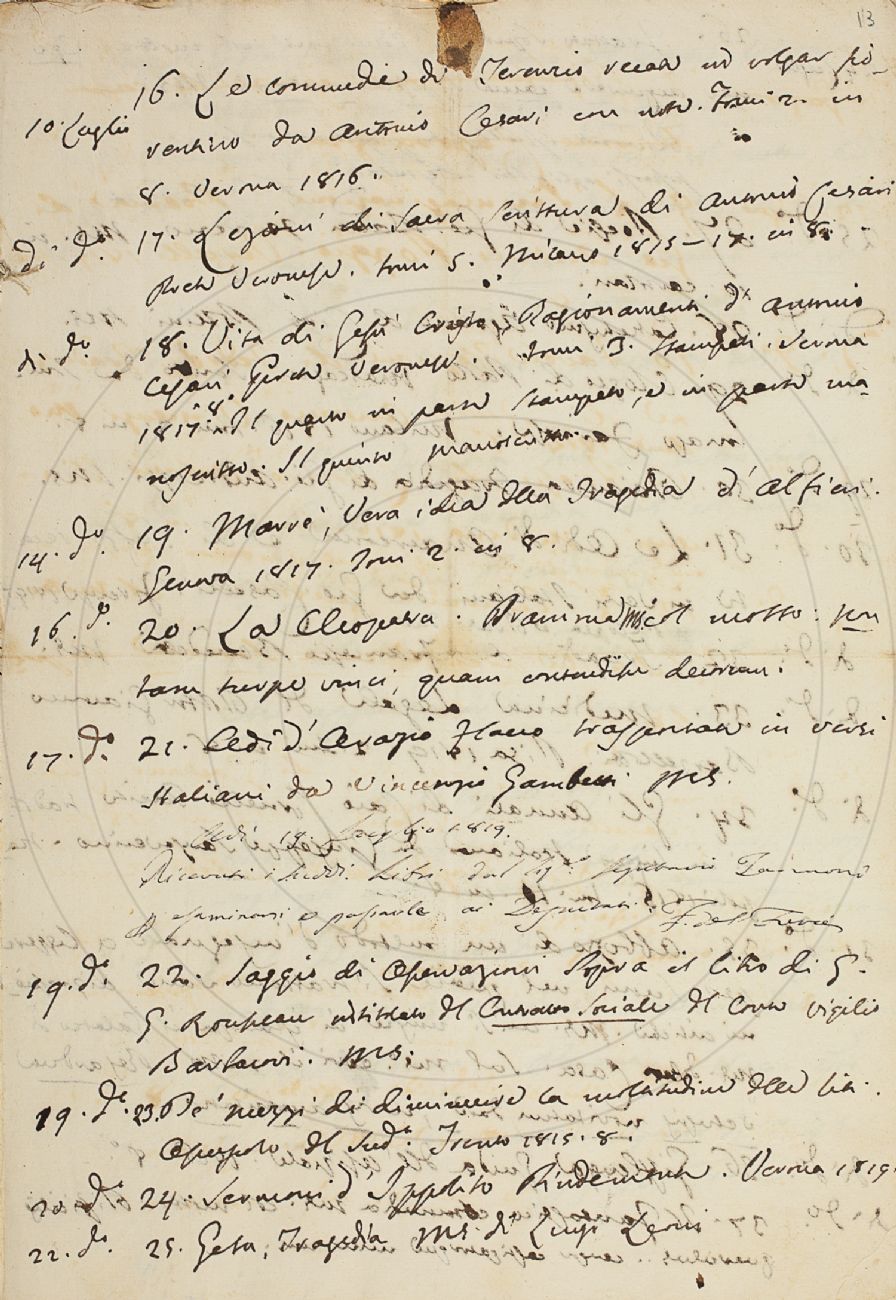 13
16. Le commedie di Terenzio recate in volgar fio-
10. Luglio rentino da Antonio Cesari con note. Tomi 2. in
8. Verona 1816.
Di do. 17. Lezioni di Sacra Scrittura di Antonio Cesari
Prete Veronese. tomi 5. Milano 1815-17. in 8.
di do. 18. Vita di Gesù Cristo Ragionamenti d'Antonio
Cesari Prete Veronese. tomi 3. Stampati. Verona
1817. 8. Il quarto in parte stampato, e in parte ma-
noscritto. Il quinto manoscritto.
14. do. 19. Marrè, Vera idea della Tragedia d'Alfieri.
Genova 1817. Tomi 2. in 8.
16. do. 20. La Cleopatra. Dramma ms. col motto: non
tam turpe vinci, quam contendisse decorum.
17. do. 21. Le Odi d'Orazio Flacco trasportate in versi
Italiani da Vincenzio Gambetti MS.
Adì 19. Luglio 1819.
Ricevuti i suddi. Libri dal Sigr. Segretario Zannoni
p esaminarsi e passarle ai Deputati. F. del Furia
19. do. 22. Saggio di Osservazioni sopra il libro di G.
G. Rousseau intitolato del Contratto Sociale del Conte Vigilio
Barbacovi. MS.
19. do. 23. De' mezzi di diminuire la moltitudine delle liti.
Opuscolo del Sudo. Trento 1815. 8o.
20 do. 24. Sermoni d'Ippolito Pindemonte. Verona 1819
22. do. 25. Geta, Tragedia MS. di Luigi